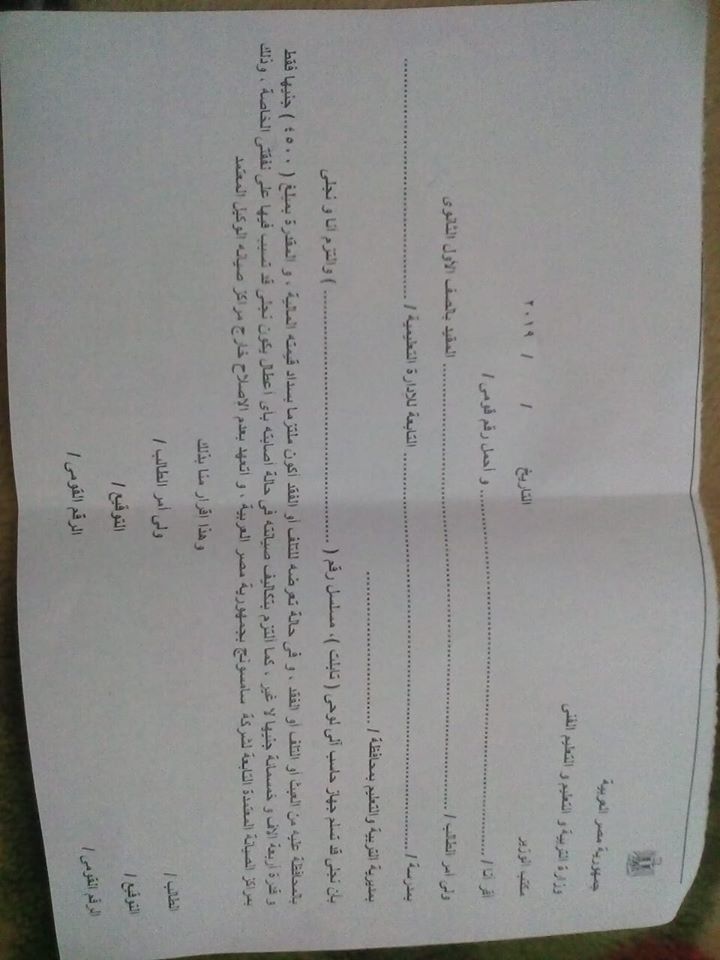 جمهورية مصر العربية
وزارة التربية و التعليم و التعليم الفنى
مكتب الوزير
التاريخ / / ٢٠١٩
اقر انا / ........................ و أحمل رقم قومى /
ولى امر الطالب / ........................ المقيد بالصف الأول الثانوى
بمدرسة / ........................ التابعة للإدارة التعليمية / ........................
بمديرية التربية والتعليم بمحافظة / ........................
بان نجلى قد تسلم جهاز حاسب آلى لوحى ( تابلت )، مسلسل رقم ( ........................ ) والتزم أنا و نجلى
بالمحافظة عليه من العبث أو التلف أو الفقد ، و فى حالة تعرضه للتلف أو الفقد أكون ملتزما بسداد قيمته المالية ، و المقدرة بمبلغ ( ٤٥٠٠ ) جنيها فقط
و قدرة أربعة آلاف و خمسمائة جنيها لا غير ، كما ألتزم بتكاليف صيانته فى حالة أصابته باى أعطال يكون نجلى قد تسبب فيها على نفقتى الخاصة ، وذلك
بمراكز الصيانة المعتمدة التابعة لشركة سامسونج بجمهورية مصر العربية ، و اتعهد بعدم الاصلاح خارج مراكز صيانه الوكيل المعتمد
و هذا اقرار منا بذلك
الطالب / ولى أمر الطالب /
التوقيع / التوقيع /
الرقم القومى / الرقم القومى /